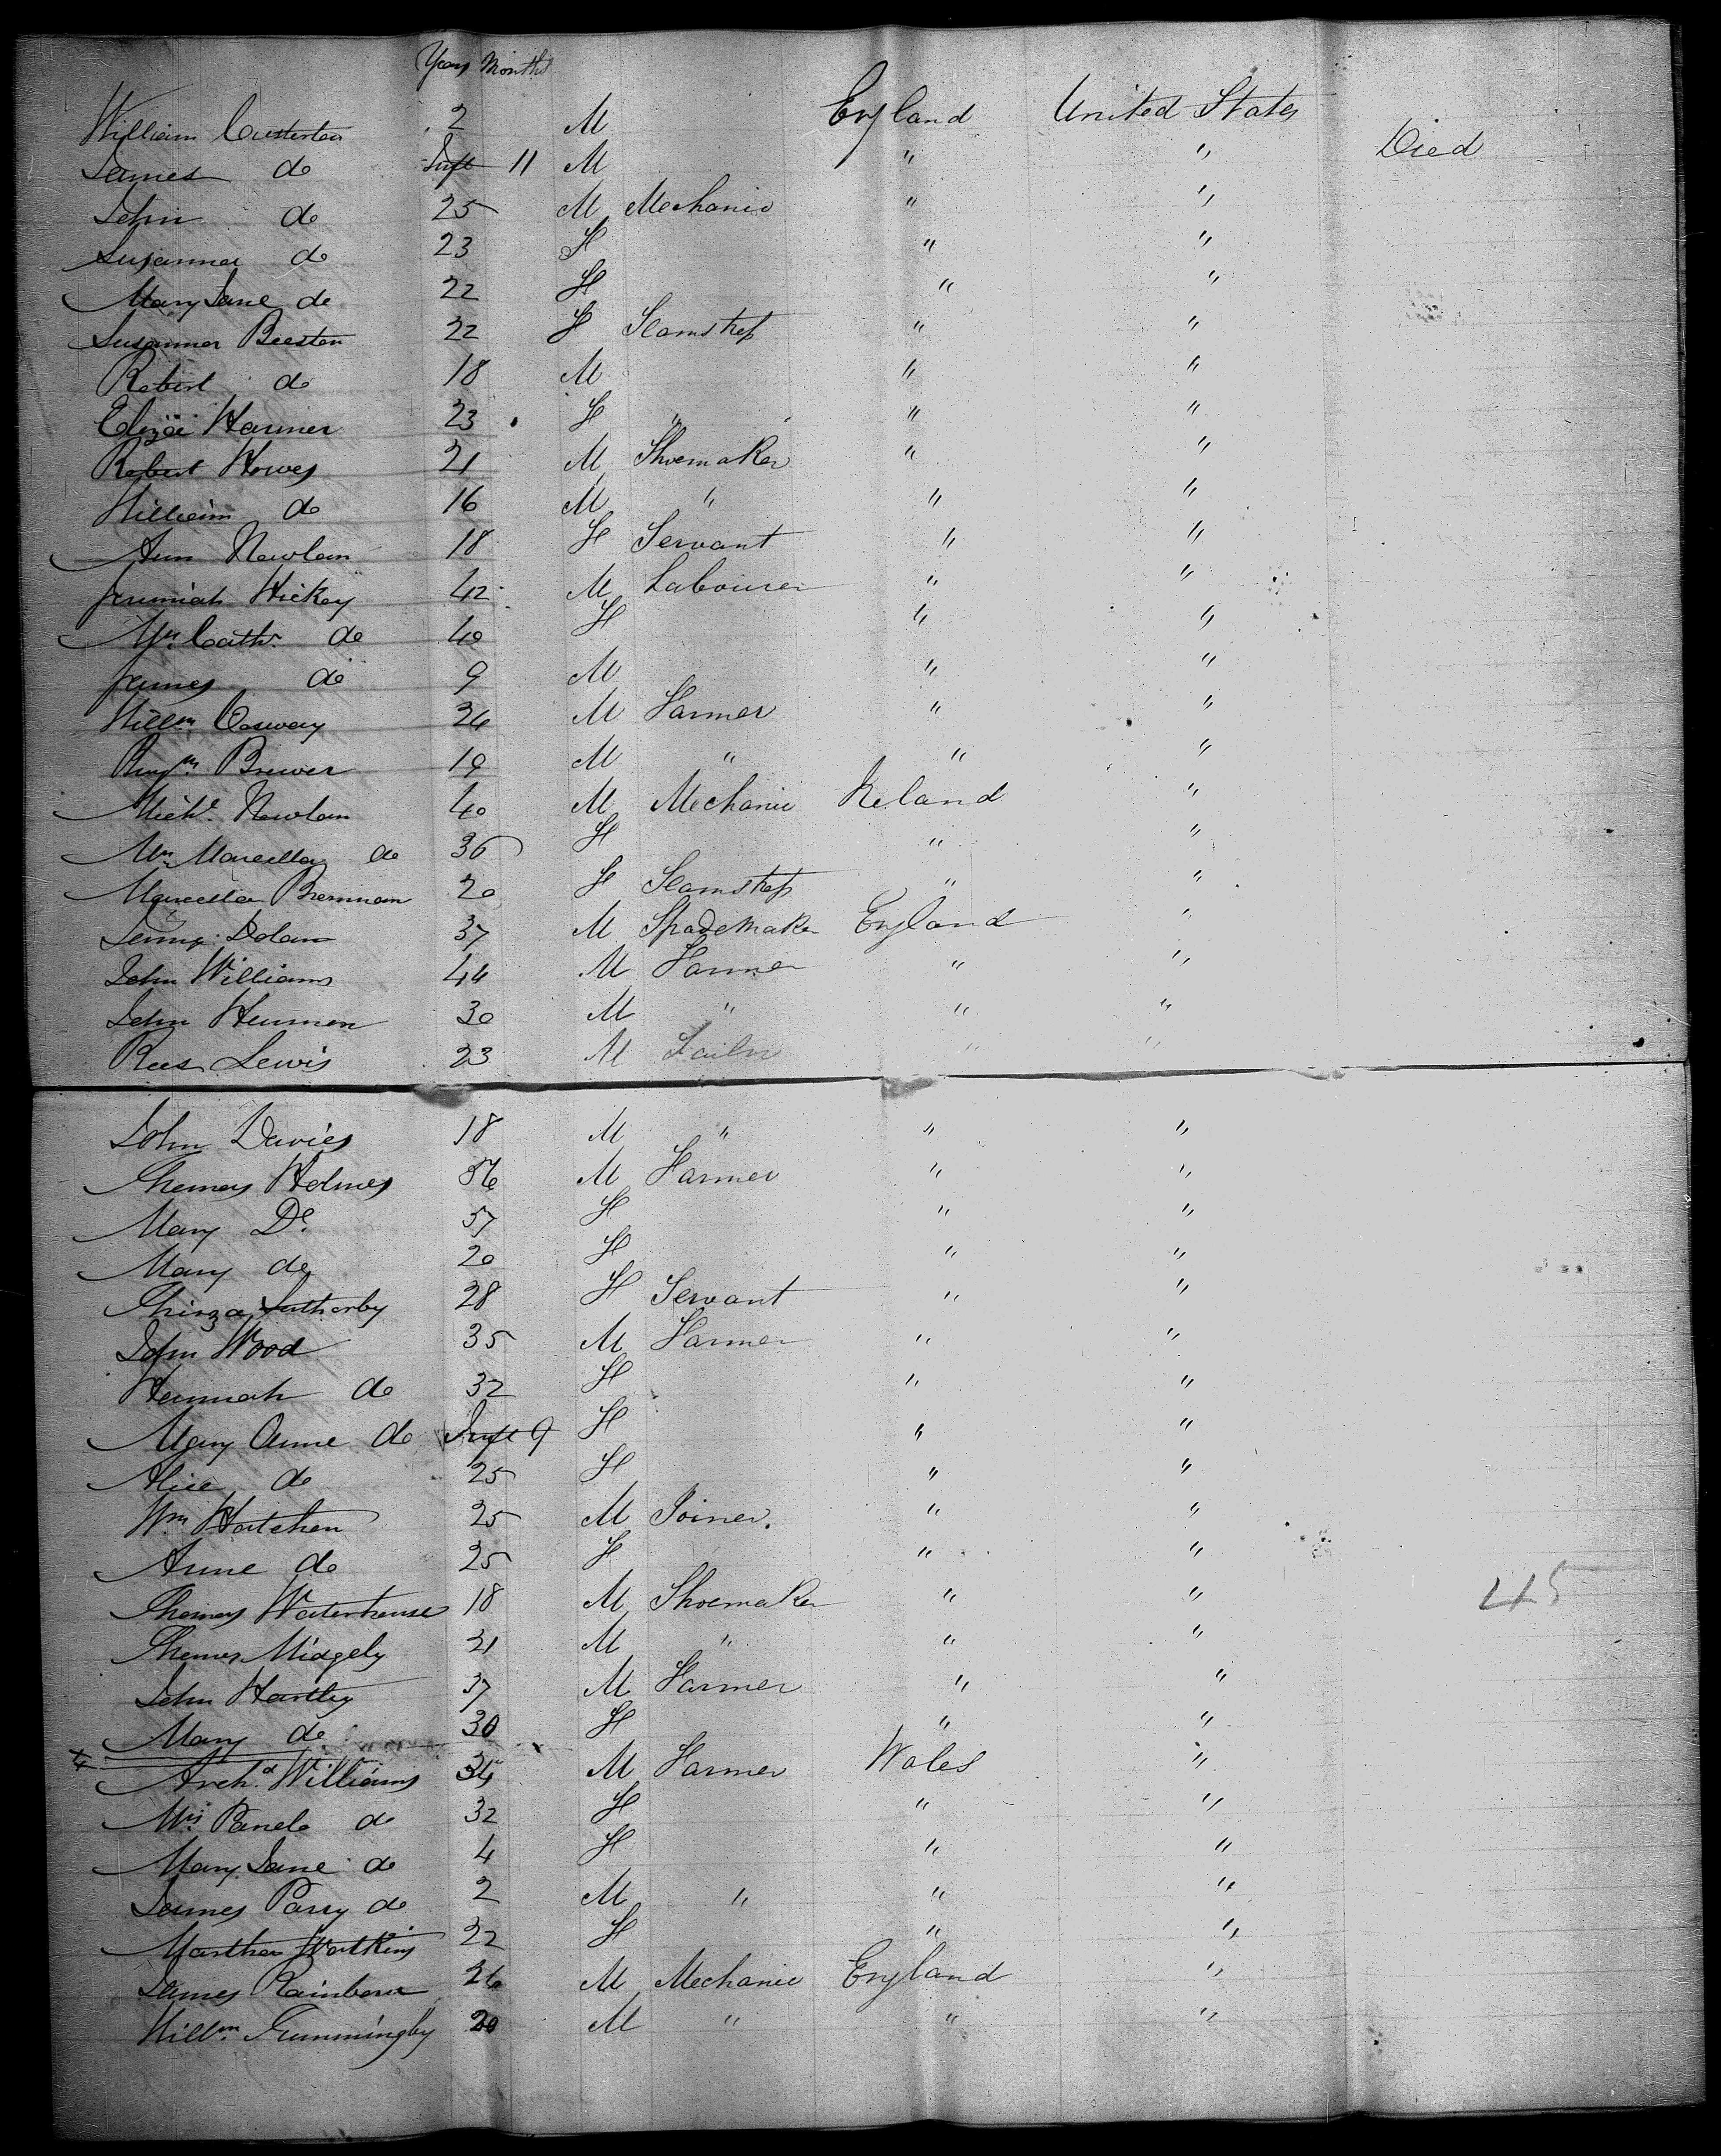 Years Months
William Custerton 2 M England United States
James do Inft 11 M " " Died
John do 25 M Mechanic " "
Susanna do 23 F " "
Mary Jane do 22 F " "
Susannar Beeston 22 F Seamstress " "
Robert do 18 M " "
Eliza Harmer 23 F " " "
Robert Howes 21 M Shoemaker " "
William do 16 M " " "
Ann Nowlan 18 F Servant " "
Jeremiah Hickey 42 M Labourer " "
Mrs. Cathr. do 40 F " "
James do 9 M " "
Willm. Conway 24 M Farmer " "
Benjm. Brewer 19 M " " "
Michl. Nowlan 40 M Mechanic Ireland "
Mrs. Marcella do 36 F " "
Marcella Brennan 20 F Seamstress " "
Dolan 37 M Spademaker England "
John Williams 44 M Farmer " "
John Hennen 30 M " " "
Rees Lewis 23 M Tailor " "
John Davies 18 M " " "
Thomas Holmes 56 M Farmer " "
Mary Do. 57 F " "
Mary do 20 F " "
Thirza Sutherby 28 F Servant " "
John Wood 35 M Farmer " "
Hannah do 32 F " "
Mary Anne do Inft 9 F " "
Alice do 25 F " "
Wm Hatchen 25 M Joiner. " "
Anne do 25 F " "
Thomas Waterhouse 18 M Shoemaker " " 45
Thomas Midgely 21 M " " "
John Hartley 37 M Farmer " "
Mary do 30 F " "
Archd. Williams 34 M Farmer Wales "
Mrs. do 32 F " "
Mary Jane do 4 F " "
James Parry do 2 M " " "
Martha Watkins 22 F " "
James Rainbow 26 M Mechanic England "
Willm. 20 M " " "